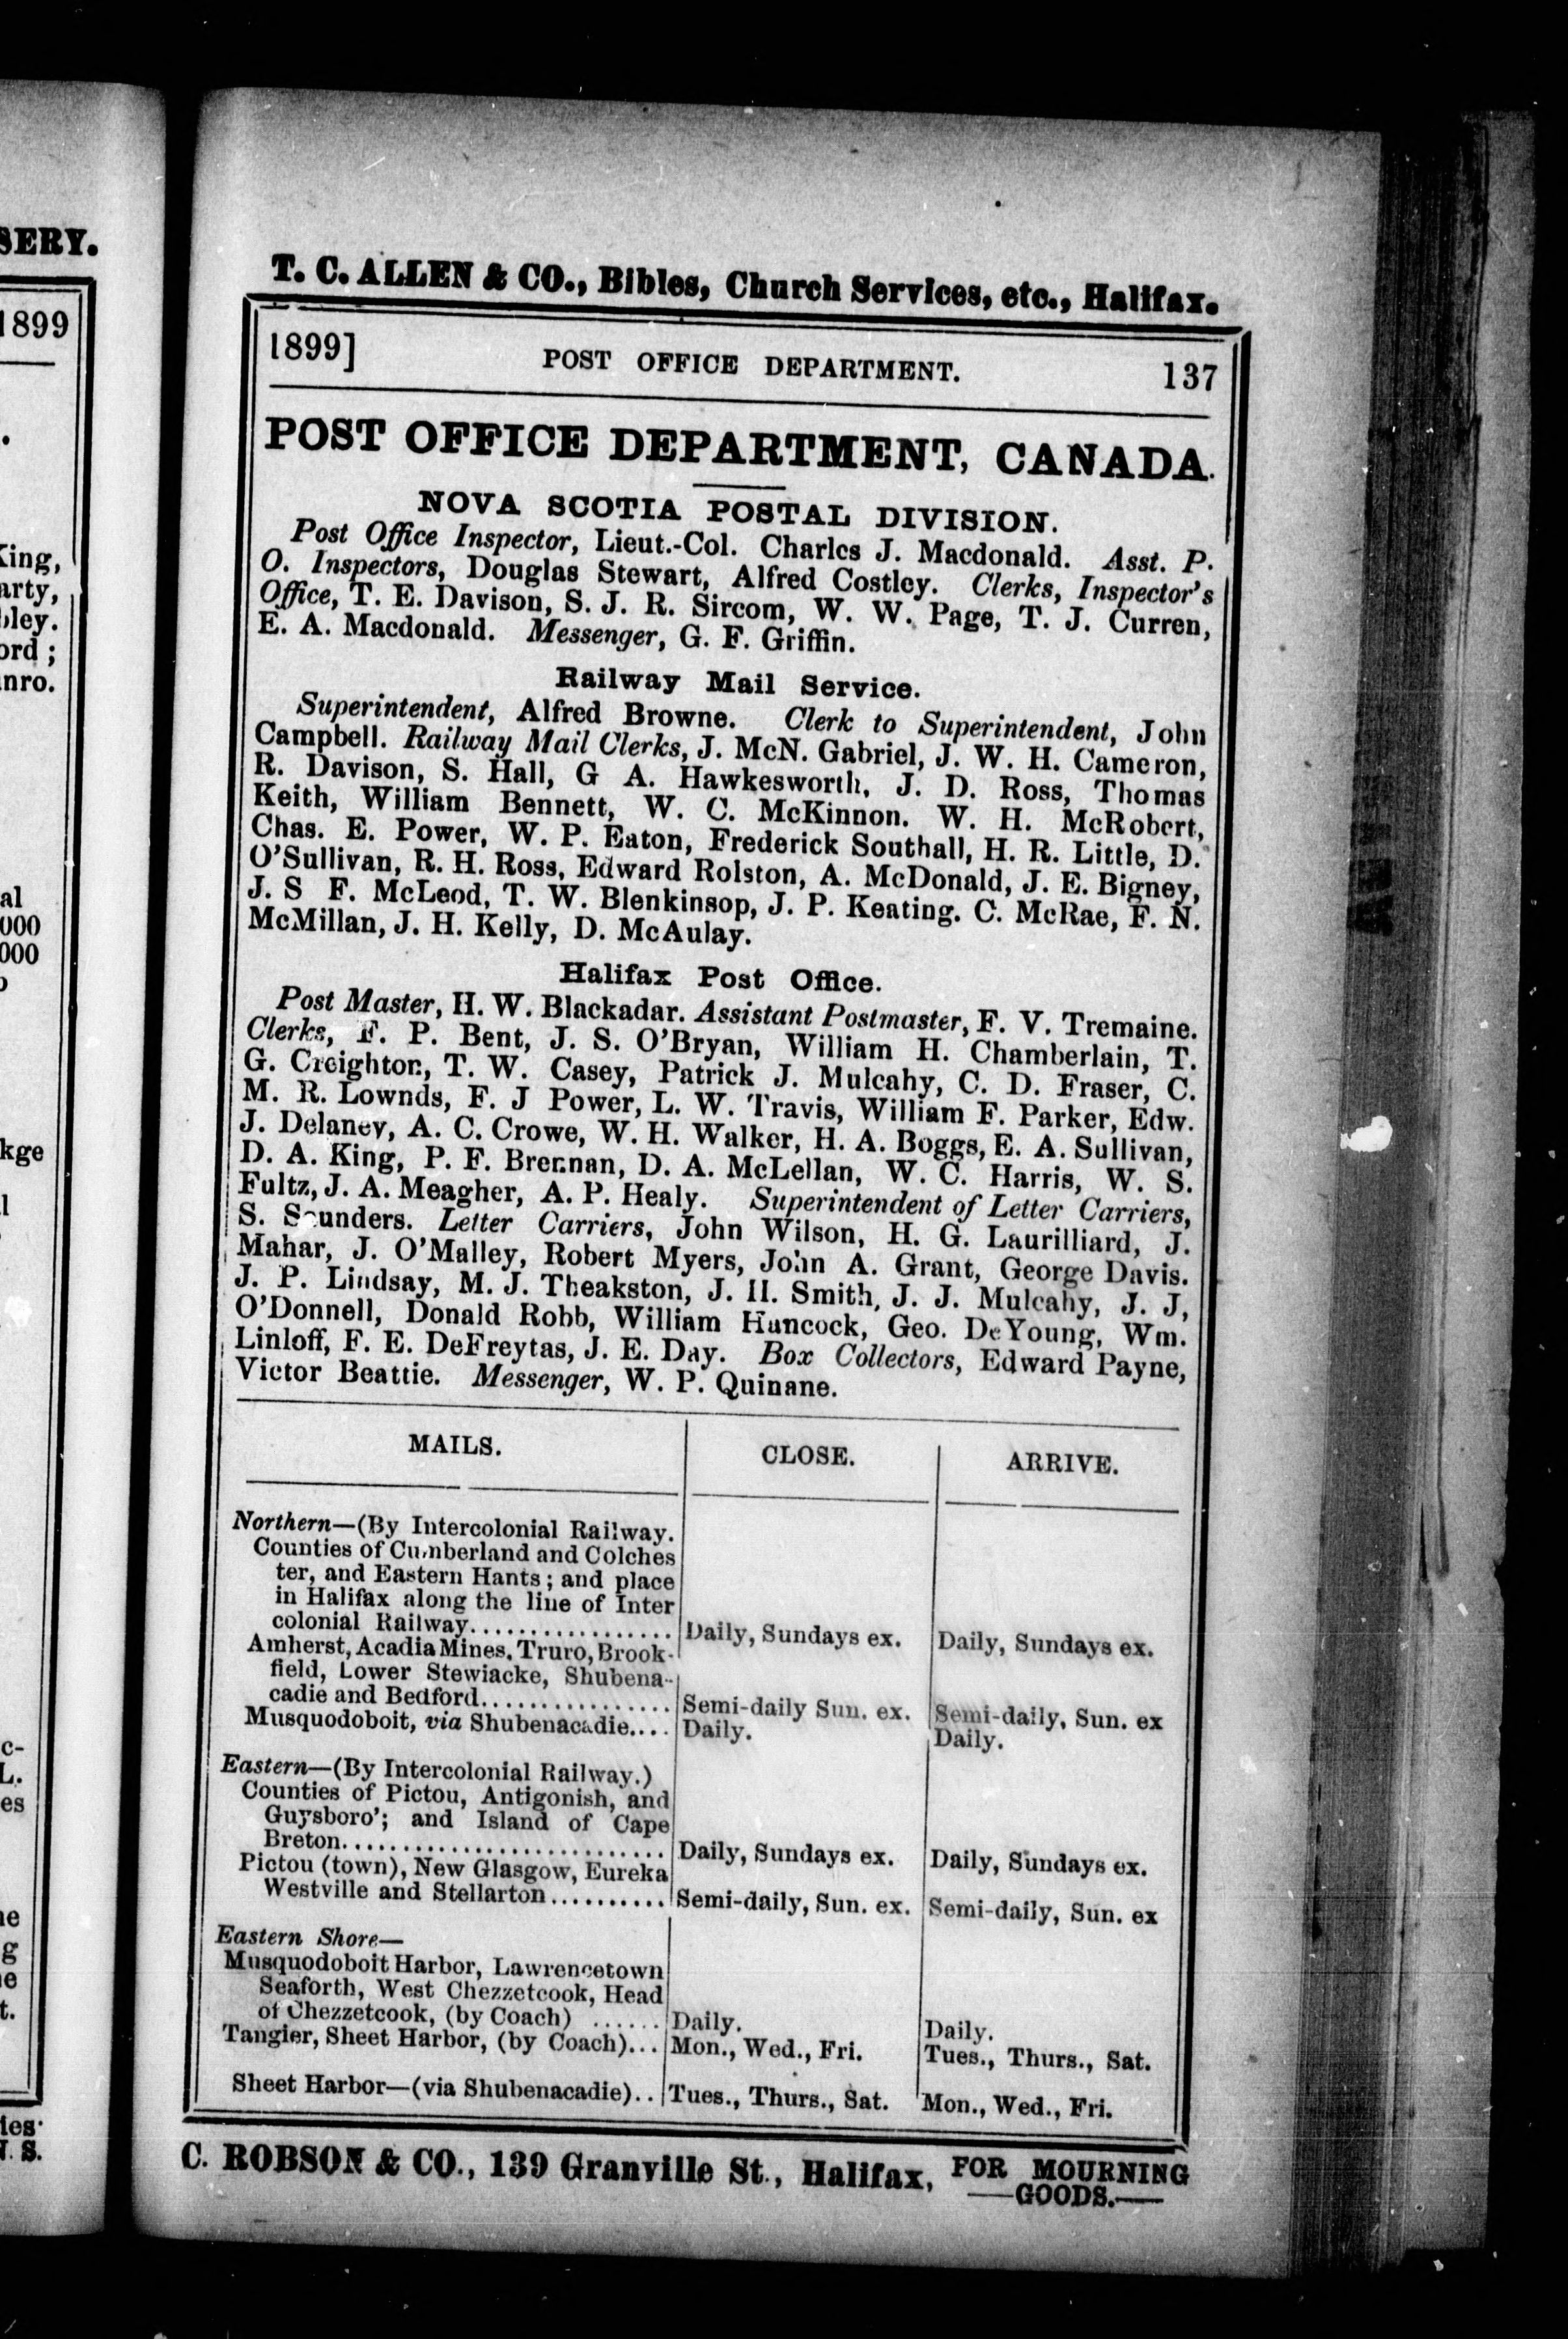 T. C. ALLEN & CO., Bibles, Church Services, etc., Halifax.
1899] POST OFFICE DEPARTMENT. 137
POST OFFICE DEPARTMENT, CANADA.
NOVA SCOTIA POSTAL DIVISION.
Post Office Inspector, Lieut.-Col. Charles J. Macdonald. Asst. P.
O. Inspectors, Douglas Stewart, Alfred Costley. Clerks, Inspector's
Office, T. E. Davison, S. J. R. Sircom, W. W. Page, T. J. Curren,
E. A. Macdonald. Messenger, G. F. Griffin.
Railway Mail Service.
Superintendent, Alfred Browne. Clerk to Superintendent, John
Campbell. Railway Mail Clerks, J. McN. Gabriel, J. W. H. Cameron,
R. Davison, S. Hall, G A. Hawkesworth, J. D. Ross, Thomas
Keith, William Bennett, W. C. McKinnon. W. H. McRobert,
Chas. E. Power, W. P. Eaton, Frederick Southall, H. R. Little, D.
O'Sullivan, R. H. Ross, Edward Rolston, A. McDonald, J. E. Bigney,
J. S F. McLeod, T. W. Blenkinsop, J. P. Keating. C. McRae, F. N.
McMillan, J. H. Kelly, D. McAulay.
Halifax Post Office.
Post Master, H. W. Blackadar. Assistant Postmaster, F. V. Tremaine.
Clerks, F. P. Bent, J. S. O'Bryan, William H. Chamberlain, T.
G. Creighton, T. W. Casey, Patrick J. Mulcahy, C. D. Fraser, C.
M. R. Lownds, F. J Power, L. W. Travis, William F. Parker, Edw.
J. Delaney, A. C. Crowe, W. H. Walker, H. A. Boggs, E. A. Sullivan,
D. A. King, P. F. Brennan, D. A. McLellan, W. C. Harris, W. S.
Fultz, J. A. Meagher, A. P. Healy. Superintendent of Letter Carriers,
S. Saunders. Letter Carriers, John Wilson, H. G. Laurilliard, J.
Mahar, J. O'Malley, Robert Myers, John A. Grant, George Davis.
J. P. Lindsay, M. J. Theakston, J. H. Smith, J. J. Mulcahy, J. J,
O'Donnell, Donald Robb, William Hancock, Geo. DeYoung, Wm.
Linloff, F. E. DeFreytas, J. E. Day. Box Collectors, Edward Payne,
Victor Beattie. Messenger, W. P. Quinane.
MAILS. CLOSE. ARRIVE.
Northern—(By Intercolonial Railway.
Counties of Cumberland and Colches
ter, and Eastern Hants; and place
in Halifax along the line of Inter
colonial Railway................. Daily, Sundays ex. Daily, Sundays ex.
Amherst, Acadia Mines, Truro, Brook-
field, Lower Stewiacke, Shubena-
cadie and Bedford................ Semi-daily Sun. ex. Semi-daily, Sun. ex
Musquodoboit, via Shubenacadie.... Daily. Daily.
Eastern—(By Intercolonial Railway.)
Counties of Pictou, Antigonish, and
Guysboro'; and Island of Cape
Breton........................... Daily, Sundays ex. Daily, Sundays ex.
Pictou (town), New Glasgow, Eureka
Westville and Stellarton.......... Semi-daily, Sun. ex. Semi-daily, Sun. ex
Eastern Shore—
Musquodoboit Harbor, Lawrencetown
Seaforth, West Chezzetcook, Head
of Chezzetcook, (by Coach) ...... Daily. Daily.
Tangier, Sheet Harbor, (by Coach)... Mon., Wed., Fri. Tues., Thurs., Sat.
Sheet Harbor—(via Shubenacadie).. Tues., Thurs., Sat. Mon., Wed., Fri.
C. ROBSON & CO., 139 Granville St., Halifax, FOR MOURNING
—GOODS.—